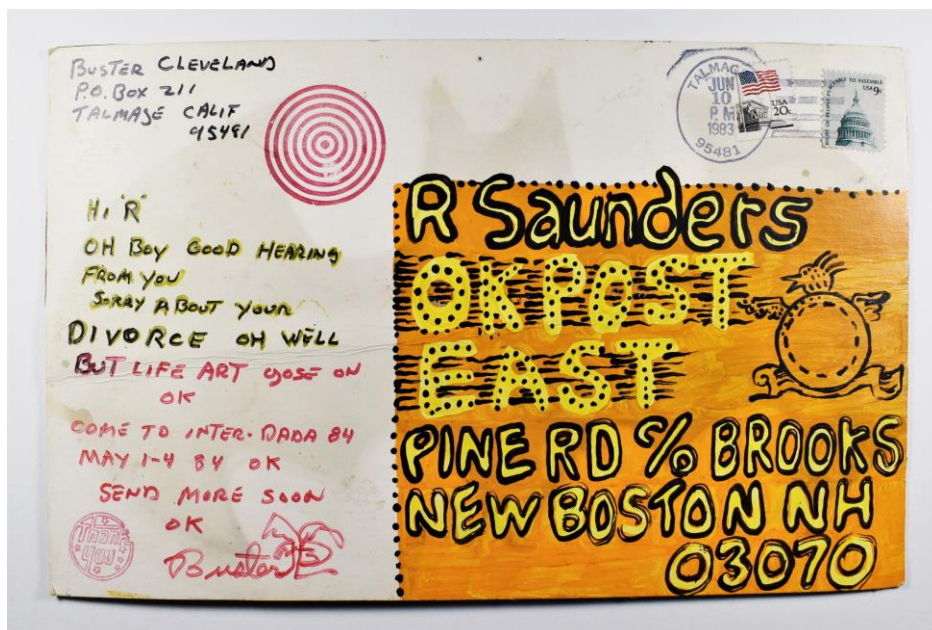 BUSTER CLEVELAND
P.O. BOX 211
TALMAGE CALIF
95481
TALMAG
JUN
10
P.M
1983
95481
USA
20c
TO ASSEMBLE
USA 9c
Hi "R"
OH BOY GOOD HEARING
FROM YOU
SORRY ABOUT YOUR
DIVORCE OH WELL
BUT LIFE ART GOSE ON
OK
COME TO INTER-DADA 84
MAY 1-4 84 OK
SEND MORE SOON
OK
Buster
Thank
you
R Saunders
OK POST
EAST
PINE RD c/o BROOKS
NEW BOSTON NH
03070